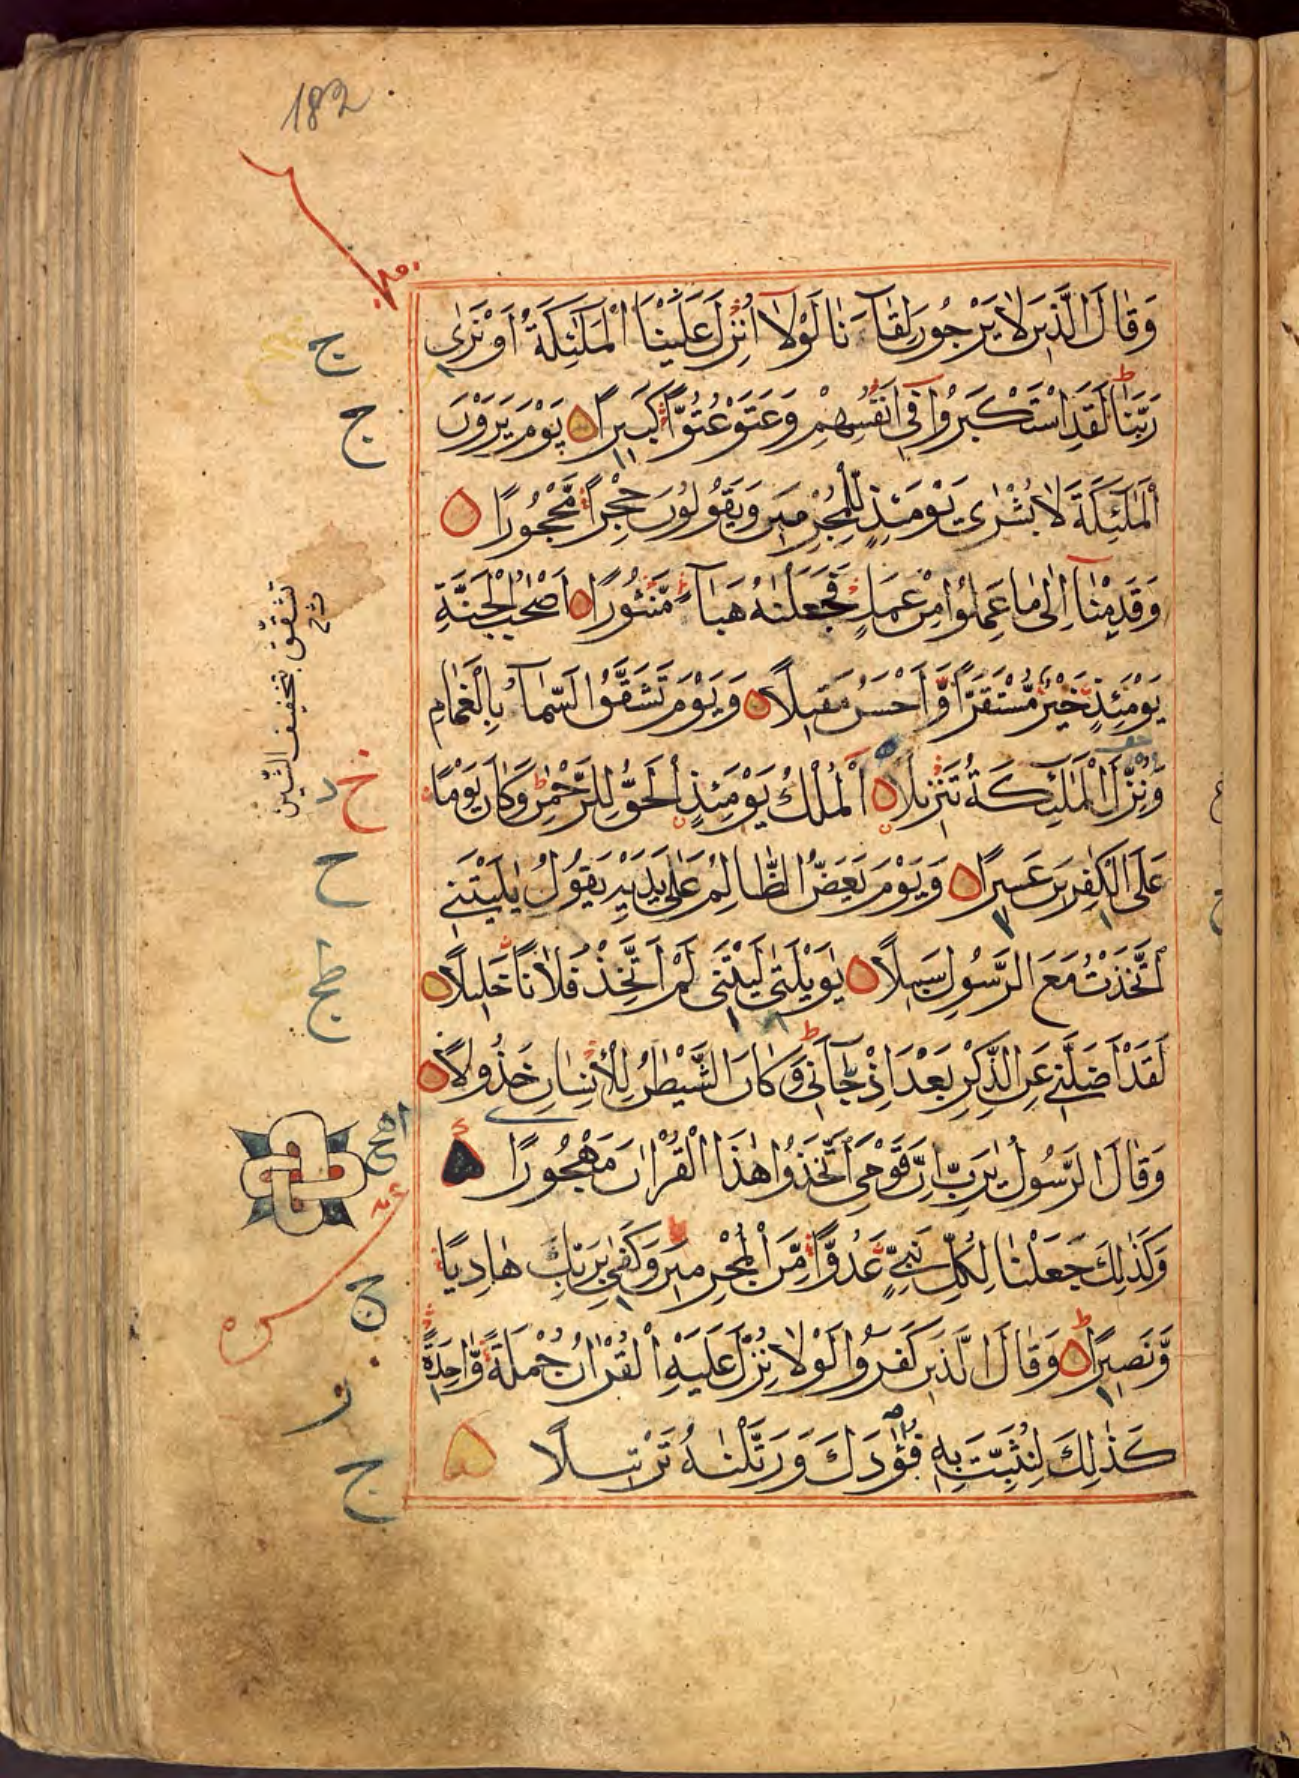 182
وَقَالَ الَّذِينَ لَا يَرْجُونَ لِقَآءَنَا لَوْلَآ اُنْزِلَ عَلَيْنَا الْمَلٰٓئِكَةُ اَوْ نَرٰى
رَبَّنَا لَقَدِ اسْتَكْبَرُوا فِىٓ اَنْفُسِهِمْ وَعَتَوْ عُتُوًّا كَبِيرًا يَوْمَ يَرَوْنَ
الْمَلٰٓئِكَةَ لَا بُشْرٰى يَوْمَئِذٍ لِلْمُجْرِمِينَ وَيَقُولُونَ حِجْرًا مَّحْجُورًا
وَقَدِمْنَآ اِلٰى مَا عَمِلُوا مِنْ عَمَلٍ فَجَعَلْنٰهُ هَبَآءً مَّنْثُورًا اَصْحٰبُ الْجَنَّةِ
يَوْمَئِذٍ خَيْرٌ مُّسْتَقَرًّا وَّاَحْسَنُ مَقِيلًا وَيَوْمَ تَشَقَّقُ السَّمَآءُ بِالْغَمَامِ
وَنُزِّلَ الْمَلٰٓئِكَةُ تَنْزِيلًا اَلْمُلْكُ يَوْمَئِذٍ الْحَقُّ لِلرَّحْمٰنِ وَكَانَ يَوْمًا
عَلَى الْكٰفِرِينَ عَسِيرًا وَيَوْمَ يَعَضُّ الظَّالِمُ عَلٰى يَدَيْهِ يَقُولُ يٰلَيْتَنِى
اتَّخَذْتُ مَعَ الرَّسُولِ سَبِيلًا يٰوَيْلَتٰى لَيْتَنِى لَمْ اَتَّخِذْ فُلَانًا خَلِيلًا
لَقَدْ اَضَلَّنِى عَنِ الذِّكْرِ بَعْدَ اِذْ جَآءَنِى وَكَانَ الشَّيْطٰنُ لِلْاِنْسَانِ خَذُولًا
وَقَالَ الرَّسُولُ يٰرَبِّ اِنَّ قَوْمِى اتَّخَذُوا هٰذَا الْقُرْاٰنَ مَهْجُورًا
وَكَذٰلِكَ جَعَلْنَا لِكُلِّ نَبِىٍّ عَدُوًّا مِّنَ الْمُجْرِمِينَ وَكَفٰى بِرَبِّكَ هَادِيًا
وَّنَصِيرًا وَقَالَ الَّذِينَ كَفَرُوا لَوْلَا نُزِّلَ عَلَيْهِ الْقُرْاٰنُ جُمْلَةً وَّاحِدَةً
كَذٰلِكَ لِنُثَبِّتَ بِهٖ فُؤٰدَكَ وَرَتَّلْنٰهُ تَرْتِيلًا
تشقّق بتخفيف الشّين